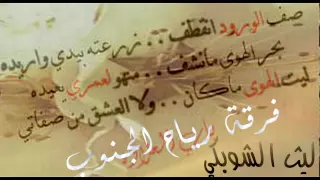 صف الورود انقطف .. زرعته بيدي واريده
بحر الهوى مانشف .. منهو لعمري يعيده
ليت الهوى ماكان .. ولا العشق من صفاتي
فرقة رياح الجنوب
ليث الشوبلي